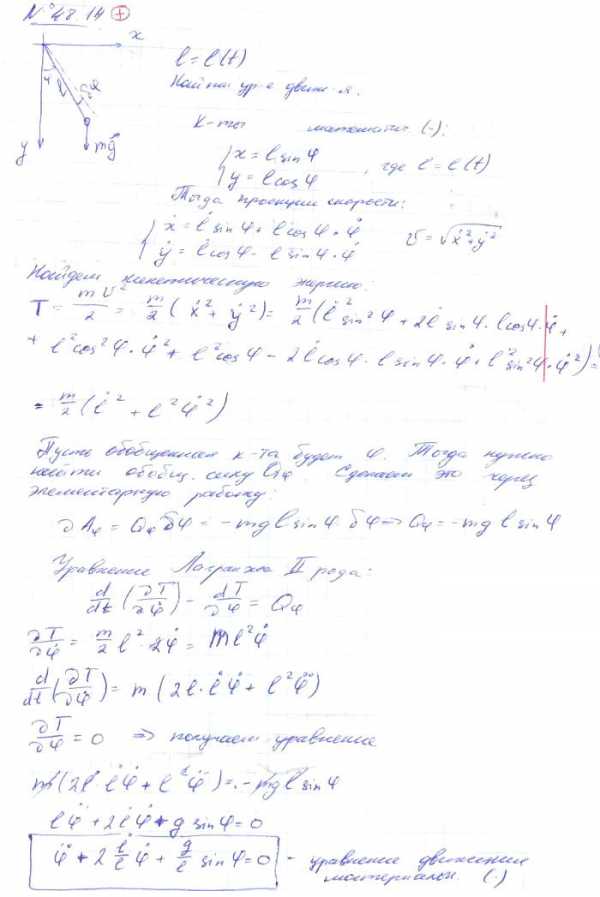 № 48.14 (+)
x
y
φ
l
mg
l = l(t)
Найти ур-е движ-я.
К-ты материальн. (·):
{ x = l sin φ
{ y = l cos φ , где l = l(t)
Тогда проекции скорости:
{ ẋ = l̇ sin φ + l cos φ · φ̇
{ ẏ = l̇ cos φ - l sin φ · φ̇
v = √(ẋ² + ẏ²)
Найдем кинетическую энергию:
T = mv²/2 = m/2 (ẋ² + ẏ²) = m/2 (l̇² sin² φ + 2l̇ sin φ · l cos φ · φ̇ +
+ l² cos² φ · φ̇² + l̇² cos φ - 2l̇ cos φ · l sin φ · φ̇ + l² sin² φ · φ̇²) =
= m/2 (l̇² + l² φ̇²)
Пусть обобщенная к-та будет φ. Тогда нужно
найти обобщ. силу Qφ. Сделаем это через
элементарную работу:
∂Aφ = Qφ δφ = - mg l sin φ · δφ => Qφ = - mg l sin φ
Уравнение Лагранжа II рода:
d/dt (∂T/∂φ̇) - ∂T/∂φ = Qφ
∂T/∂φ̇ = m/2 l² · 2φ̇ = ml² φ̇
d/dt (∂T/∂φ̇) = m (2l · l̇ φ̇ + l² φ̈)
∂T/∂φ = 0 => получаем уравнение
m(2l · l̇ φ̇ + l² φ̈) = - mg l sin φ
l φ̈ + 2l̇ φ̇ + g sin φ = 0
φ̈ + 2 l̇/l φ̇ + g/l sin φ = 0 - уравнение движения
материальн. (·)